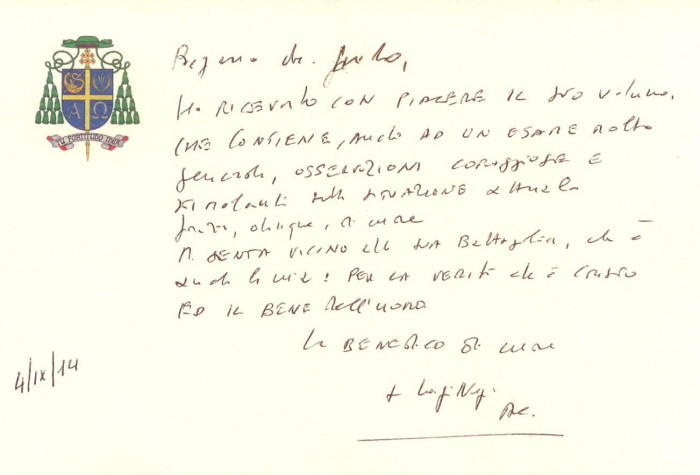 TU FORTITUDO MEA
A Ω
Ho RICEVUTO CON PIACERE IL SUO volume,
CHE CONTIENE, anche AD UN ESAME molto
generale, OSSERVAZIONI coraggiose E
stimolanti sulla SITUAZIONE attuale
grazie, dunque, di cuore
Mi SENTA VICINO alla SUA Battaglia, che è
anche la mia: PER LA VERITÀ che è Cristo
ED IL BENE dell'uomo
La BENEDICO di cuore
4/IX/14
+ Luigi Negri